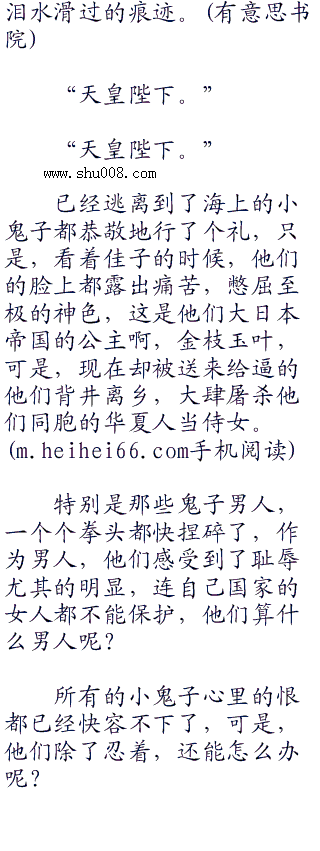 泪水滑过的痕迹。（有意思书
院）
“天皇陛下。”
“天皇陛下。”
www.shu008.com
已经逃离到了海上的小
鬼子都恭敬地行了个礼，只
是，看着佳子的时候，他们
的脸上都露出痛苦，憋屈至
极的神色，这是他们大日本
帝国的公主啊，金枝玉叶，
可是，现在却被送来给逼的
他们背井离乡，大肆屠杀他
们同胞的华夏人当侍女。
(m.heihei66.com手机阅读)
特别是那些鬼子男人，
一个个拳头都快捏碎了，作
为男人，他们感受到了耻辱
尤其的明显，连自己国家的
女人都不能保护，他们算什
么男人呢？
所有的小鬼子心里的恨
都已经快容不下了，可是，
他们除了忍着，还能怎么办
呢？